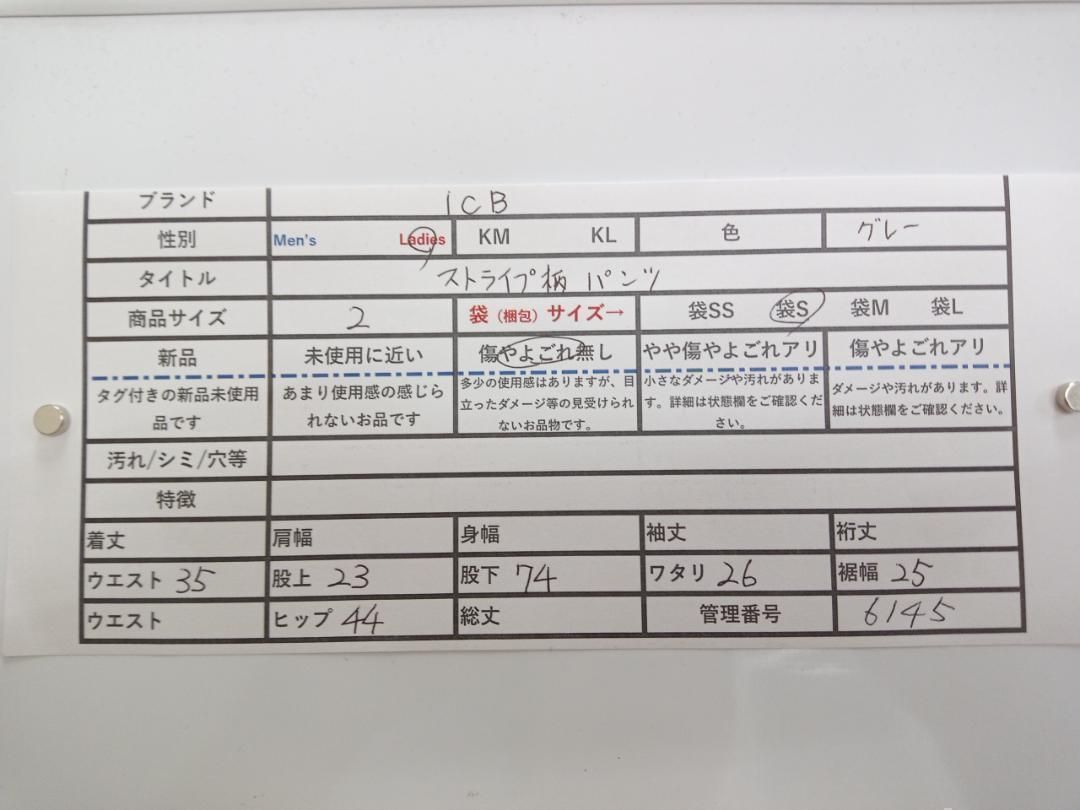 ブランド ICB
性別 Men's Ladies KM KL 色 グレー
タイトル ストライプ柄 パンツ
商品サイズ 2 袋（梱包）サイズ→ 袋SS 袋S 袋M 袋L
新品 未使用に近い 傷やよごれ無し やや傷やよごれアリ 傷やよごれアリ
タグ付きの新品未使用品です あまり使用感の感じられないお品です 多少の使用感はありますが、目立ったダメージ等の見受けられないお品物です。 小さなダメージや汚れがあります。詳細は状態欄をご確認ください。 ダメージや汚れがあります。詳細は状態欄をご確認ください。
汚れ/シミ/穴等
特徴
着丈 肩幅 身幅 袖丈 裄丈
ウエスト 35 股上 23 股下 74 ワタリ 26 裾幅 25
ウエスト ヒップ 44 総丈 管理番号 6145